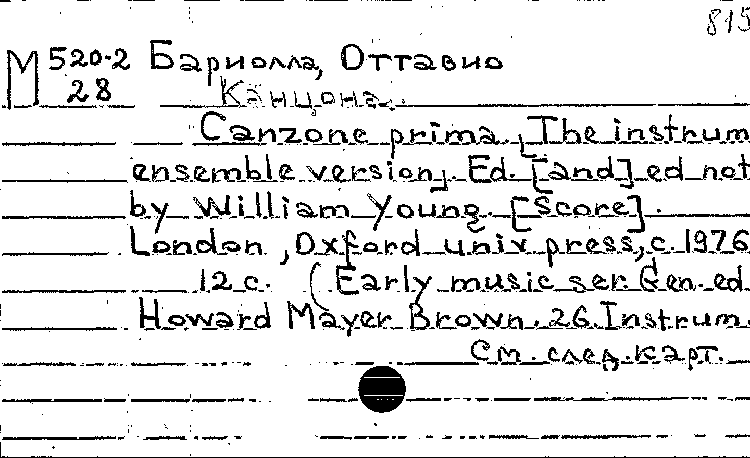 815
М 520-2 Бариолла, Оттавио
28 Канцона.
Canzone prima. [The instrum
ensemble version]. Ed. [and] ed not
by William Young. [Score].
London, Oxford univ press, c. 1976
12 c. (Early music ser. Gen. ed.
Howard Mayer Brown. 26. Instrum.
См. след. карт.